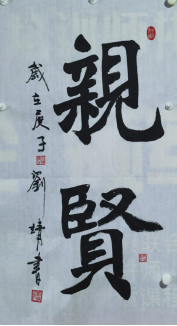 親賢
歲在庚子
劉靖書